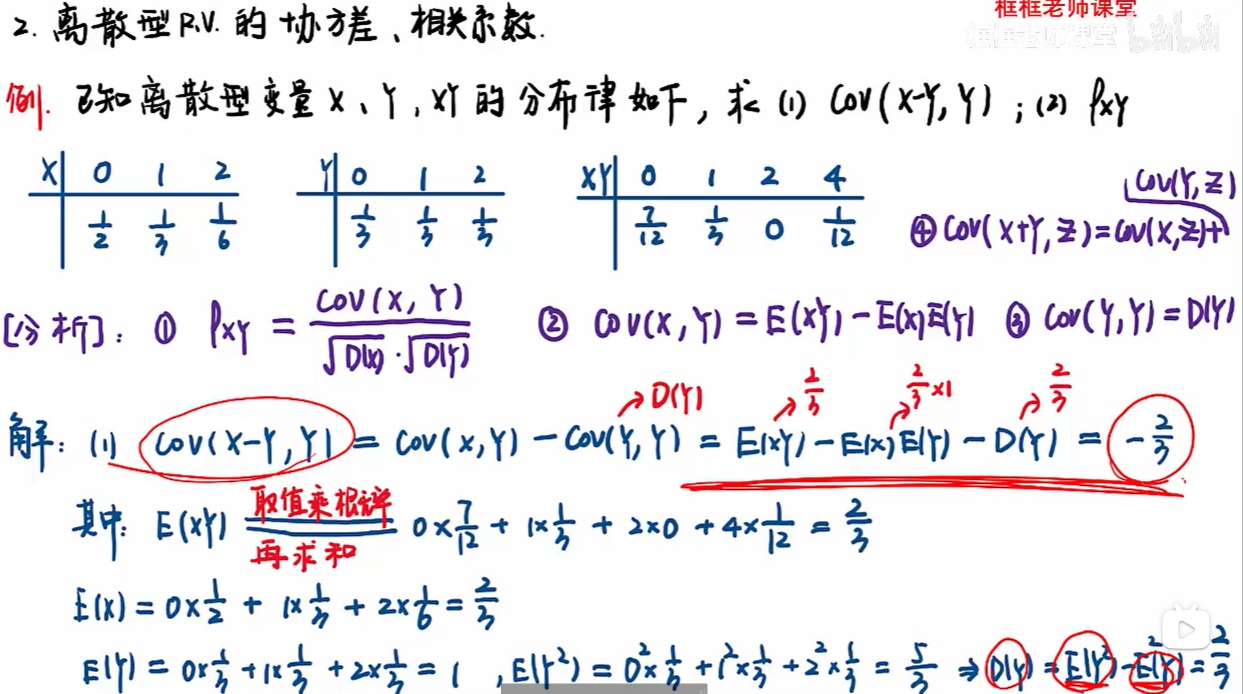 框框老师课堂
2. 离散型R.V.的协方差、相关系数.
框框老师课堂 bilibili
例. 已知离散型变量X、Y, XY的分布律如下, 求 (1) Cov(X-Y, Y) ; (2) ρXY
X 0 1 2
1/2 1/3 1/6
Y 0 1 2
1/3 1/3 1/3
XY 0 1 2 4
7/12 1/3 0 1/12
④ Cov(X+Y, Z)=Cov(X,Z)+Cov(Y,Z)
[分析]: ① ρXY = Cov(X, Y) / √D(X) · √D(Y) ② Cov(X,Y) = E(XY) - E(X)E(Y) ③ Cov(Y,Y) = D(Y)
→D(Y) 2/3 2/3×1 2/3
解: (1) Cov(X-Y, Y) = Cov(X,Y) - Cov(Y,Y) = E(XY) - E(X)E(Y) - D(Y) = -2/3
其中: E(XY) 取值乘概率 再求和 0×7/12 + 1×1/3 + 2×0 + 4×1/12 = 2/3
E(X) = 0×1/2 + 1×1/3 + 2×1/6 = 2/3
E(Y) = 0×1/3 + 1×1/3 + 2×1/3 = 1 , E(Y²) = 0²×1/3 + 1²×1/3 + 2²×1/3 = 5/3 ⇒ D(Y) = E(Y²) - E²(Y) = 2/3